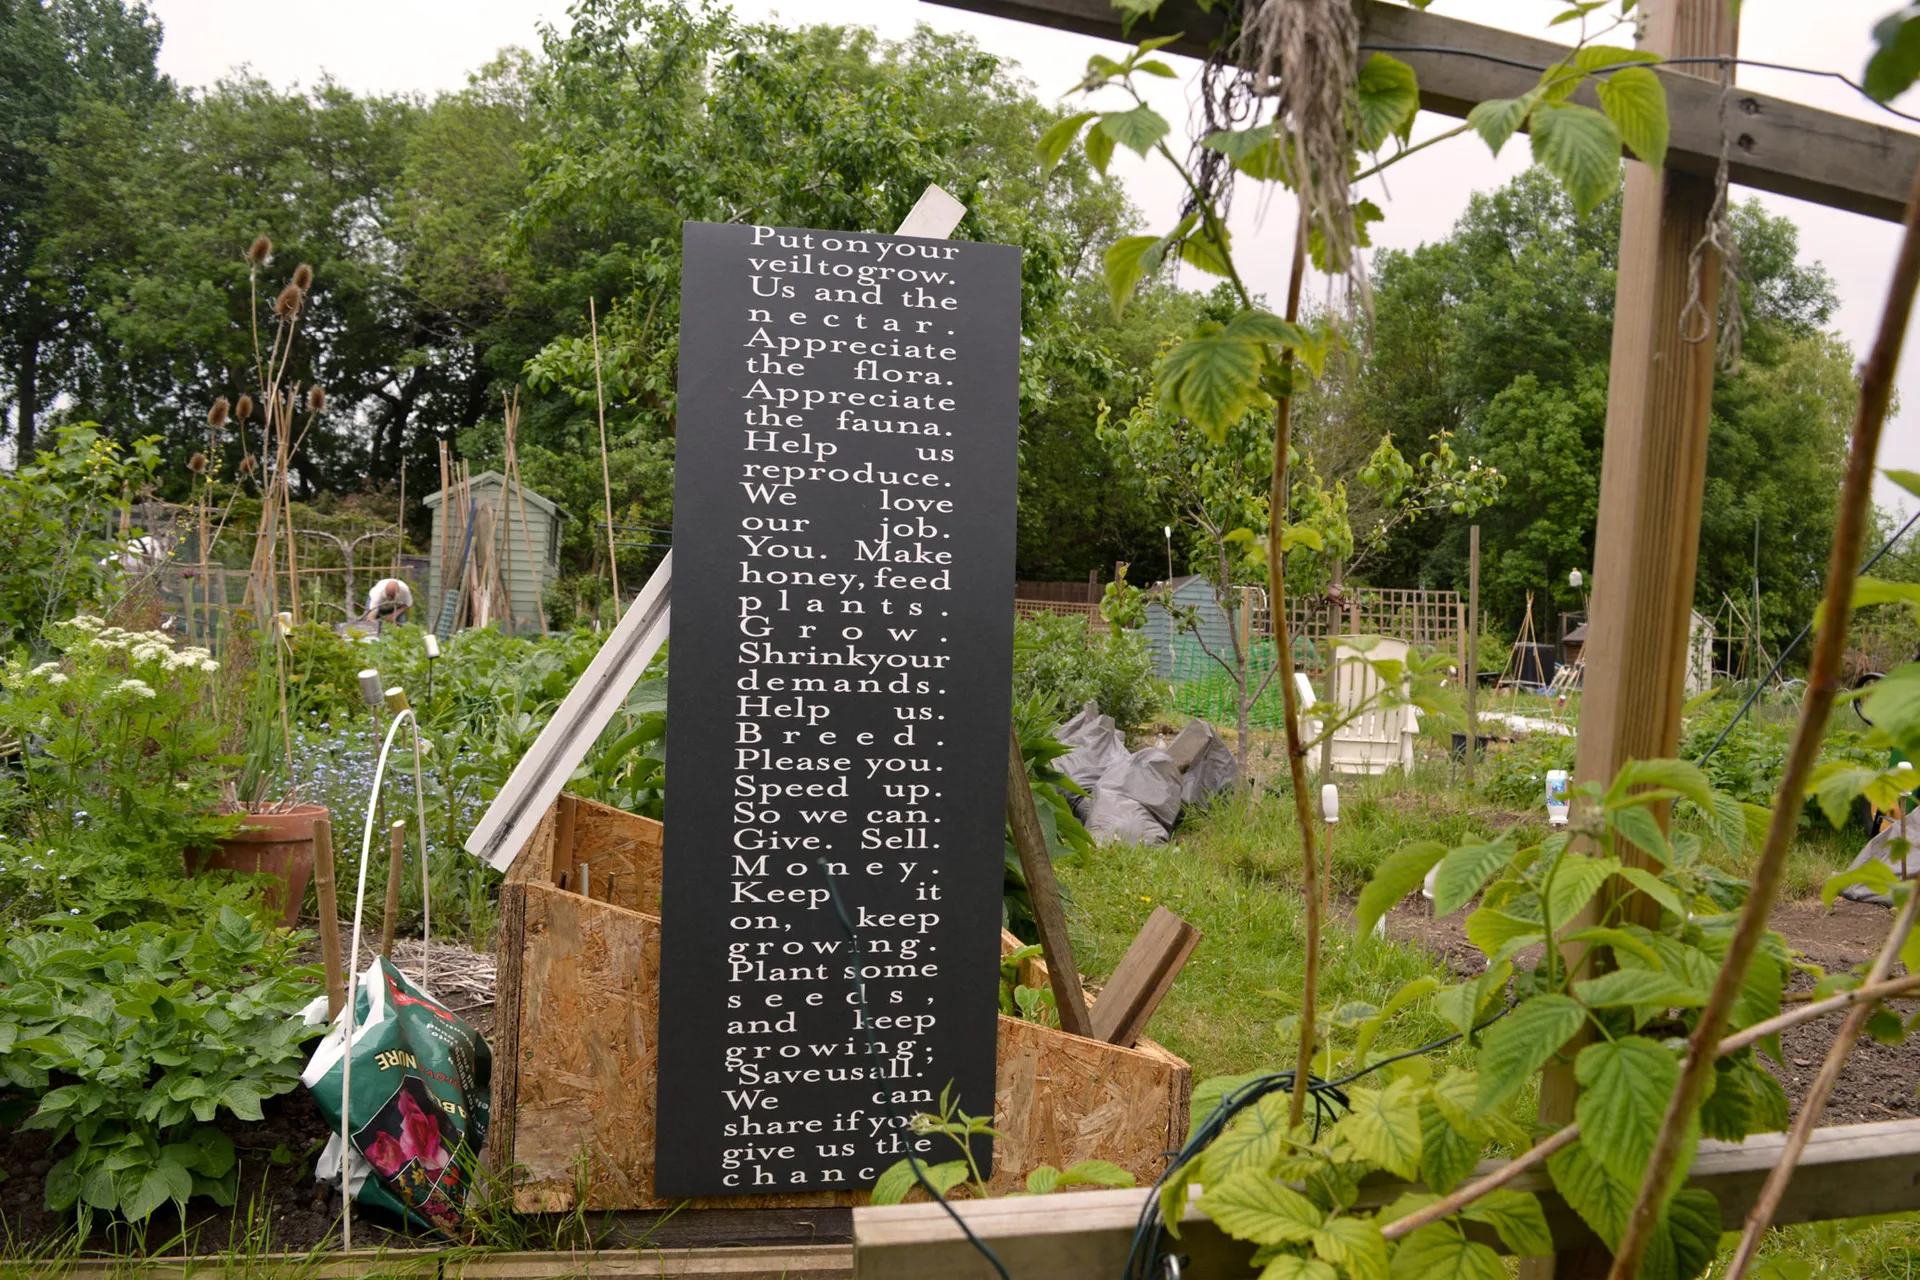 Put on your
veil to grow.
Us and the
nectar.
Appreciate
the flora.
Appreciate
the fauna.
Help us
reproduce.
We love
our job.
You. Make
honey, feed
plants.
Grow.
Shrink your
demands.
Help us.
Breed.
Please you.
Speed up.
So we can.
Give. Sell.
Money.
Keep it
on, keep
growing.
Plant some
seeds,
and keep
growing;
Save us all.
We can
share if you
give us the
chanc